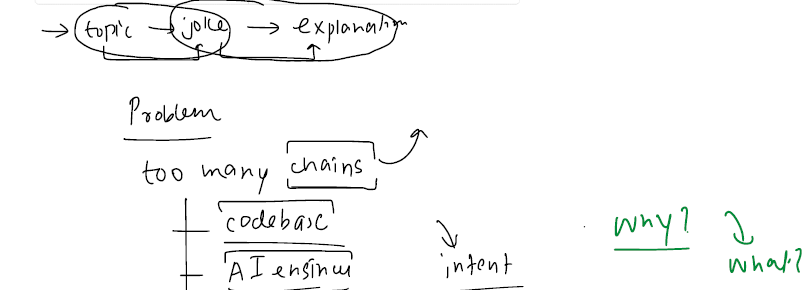 topic → joke → explanation
Problem
too many chains
codebase
why?
AI engineer
intent
what?